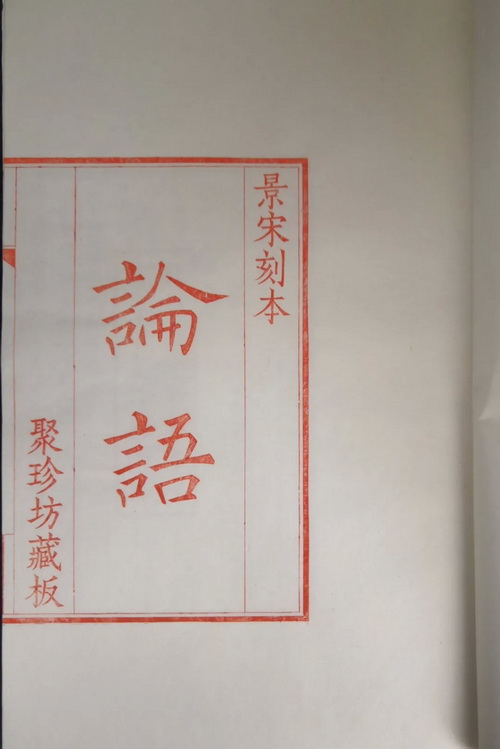 景宋刻本
論語
聚珍坊藏板